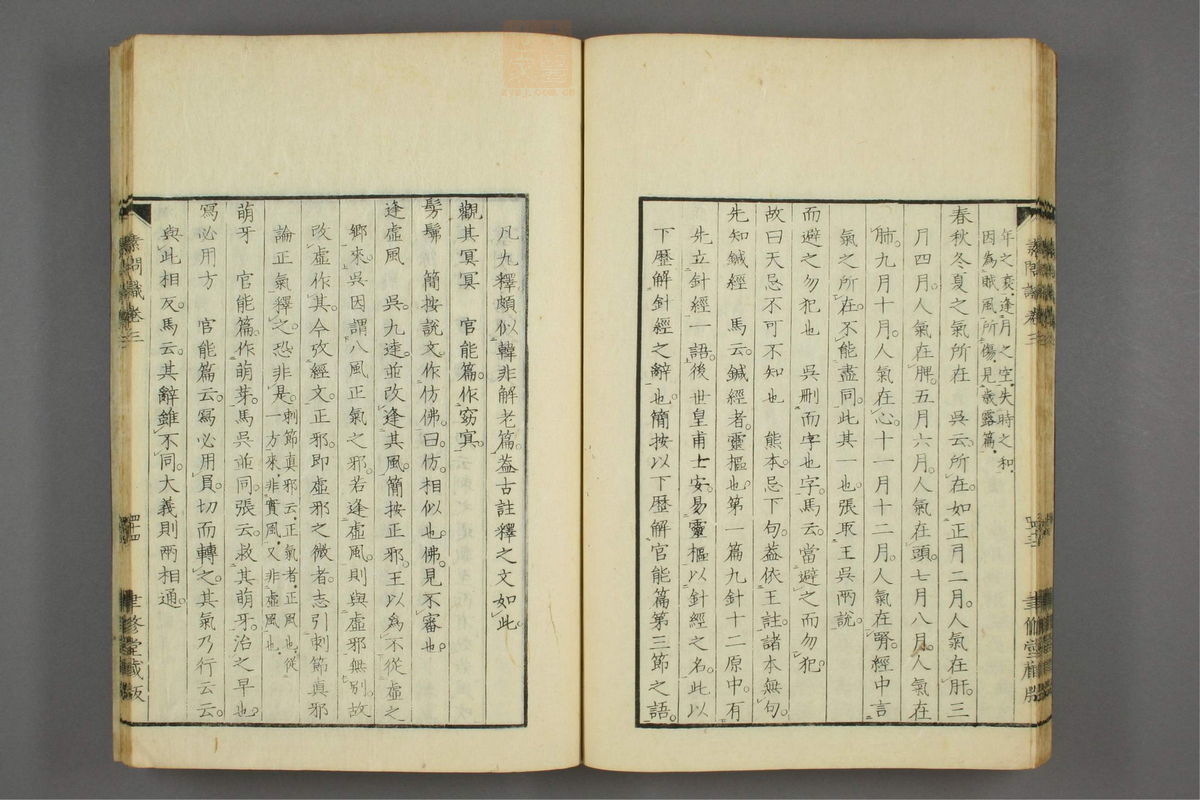 年之衰逢月之空失時之和
因為賊風所傷見歲露篇
春秋冬夏之氣所在　吳云所在如正月二月人氣在肝三
月四月人氣在脾五月六月人氣在頭七月八月人氣在
肺九月十月人氣在心十一月十二月人氣在腎經中言
氣之所在不能盡同此其一也張取王吳兩說
而避之勿犯也　吳刪而字也字馬云當避之而勿犯
故曰天忌不可不知也　熊本忌下句蓋依王註諸本無句
先知鍼經　馬云鍼經者靈樞也第一篇九針十二原中有
先立針經一語後世皇甫士安易靈樞以針經之名此以
下歷解針經之辭也簡按以下歷解官能篇第三節之語
素問識卷三
聿修堂藏版
凡九釋頗似韓非解老篇蓋古註釋之文如此
觀其冥冥　官能篇作窈冥
髣髴　簡按說文作仿佛曰仿相似也佛見不審也
逢虛風　吳九達並改逢其風簡按正邪王以為不從虛之
鄉來吳因謂八風正氣之邪若逢虛風則與虛邪無別故
改虛作其今攷經文正邪即虛邪之微者志引刺節真邪
論正氣釋之恐非是刺節真邪云正氣者正風也從
一方來非實風又非虛風也
萌牙　官能篇作萌芽馬吳並同張云救其萌牙治之早也
寫必用方　官能篇云寫必用員切而轉之其氣乃行云云
與此相反馬云其辭雖不同大義則兩相通
素問識卷三
四十四
聿修堂藏版